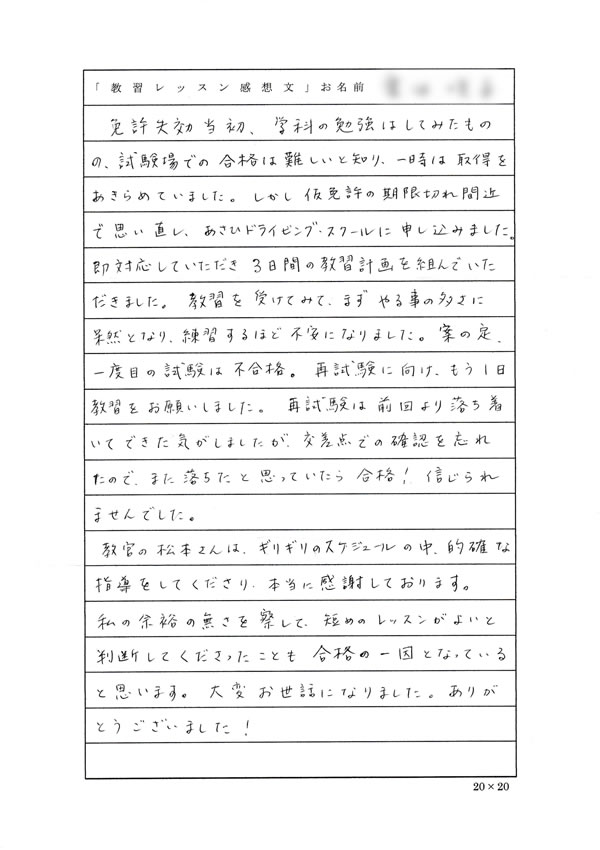 「教習レッスン感想文」お名前
免許失効当初、学科の勉強はしてみたもの
の、試験場での合格は難しいと知り、一時は取得を
あきらめていました。しかし仮免許の期限切れ間近
で思い直し、あさひドライビング・スクールに申し込みました。
即対応していただき3日間の教習計画を組んでいた
だきました。教習を受けてみて、まずやる事の多さに
呆然となり、練習するほど不安になりました。案の定、
一度目の試験は不合格。再試験に向け、もう1日
教習をお願いしました。再試験は前回より落ち着
いてできた気がしましたが、交差点での確認を忘れ
たので、また落ちたと思っていたら合格！信じられ
ませんでした。
教官の松本さんは、ギリギリのスケジュールの中、的確な
指導をしてくださり、本当に感謝しております。
私の余裕の無さを察して、短めのレッスンがよいと
判断してくださったことも合格の一因となっている
と思います。大変お世話になりました。ありが
とうございました！
20×20